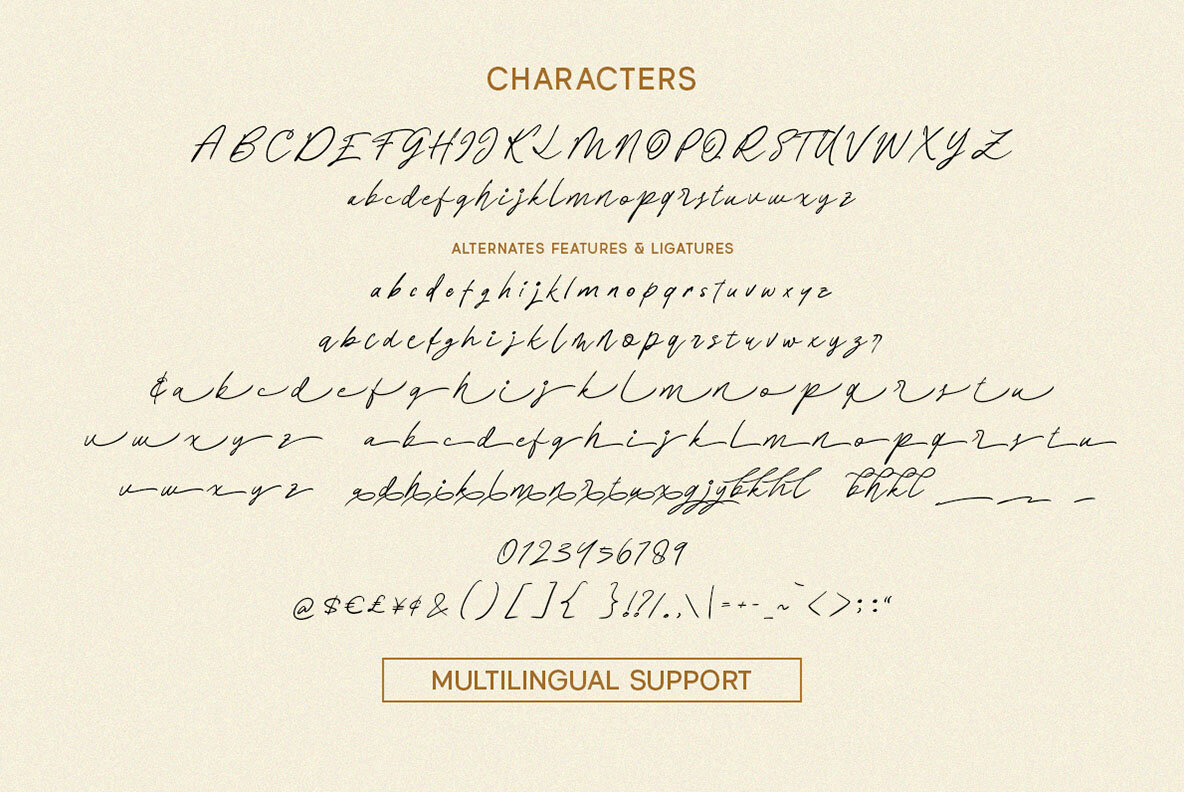 CHARACTERS
ABCDEFGHIJKLMNOPQRSTUVWXYZ
abcdefghijklmnopqrstuvwxyz
ALTERNATES FEATURES & LIGATURES
abcdefghijklmnopqrstuvwxyz
abcdefghijklmnopqrstuvwxyz
¢abcdefghijklmnopqrstu
vwxyz abcdefghijklmnopqrstu
vwxyz bhkl
0123456789
@$€£¥¢&()[]{ }!?/.,\|=+-_~ <>;:“
MULTILINGUAL SUPPORT